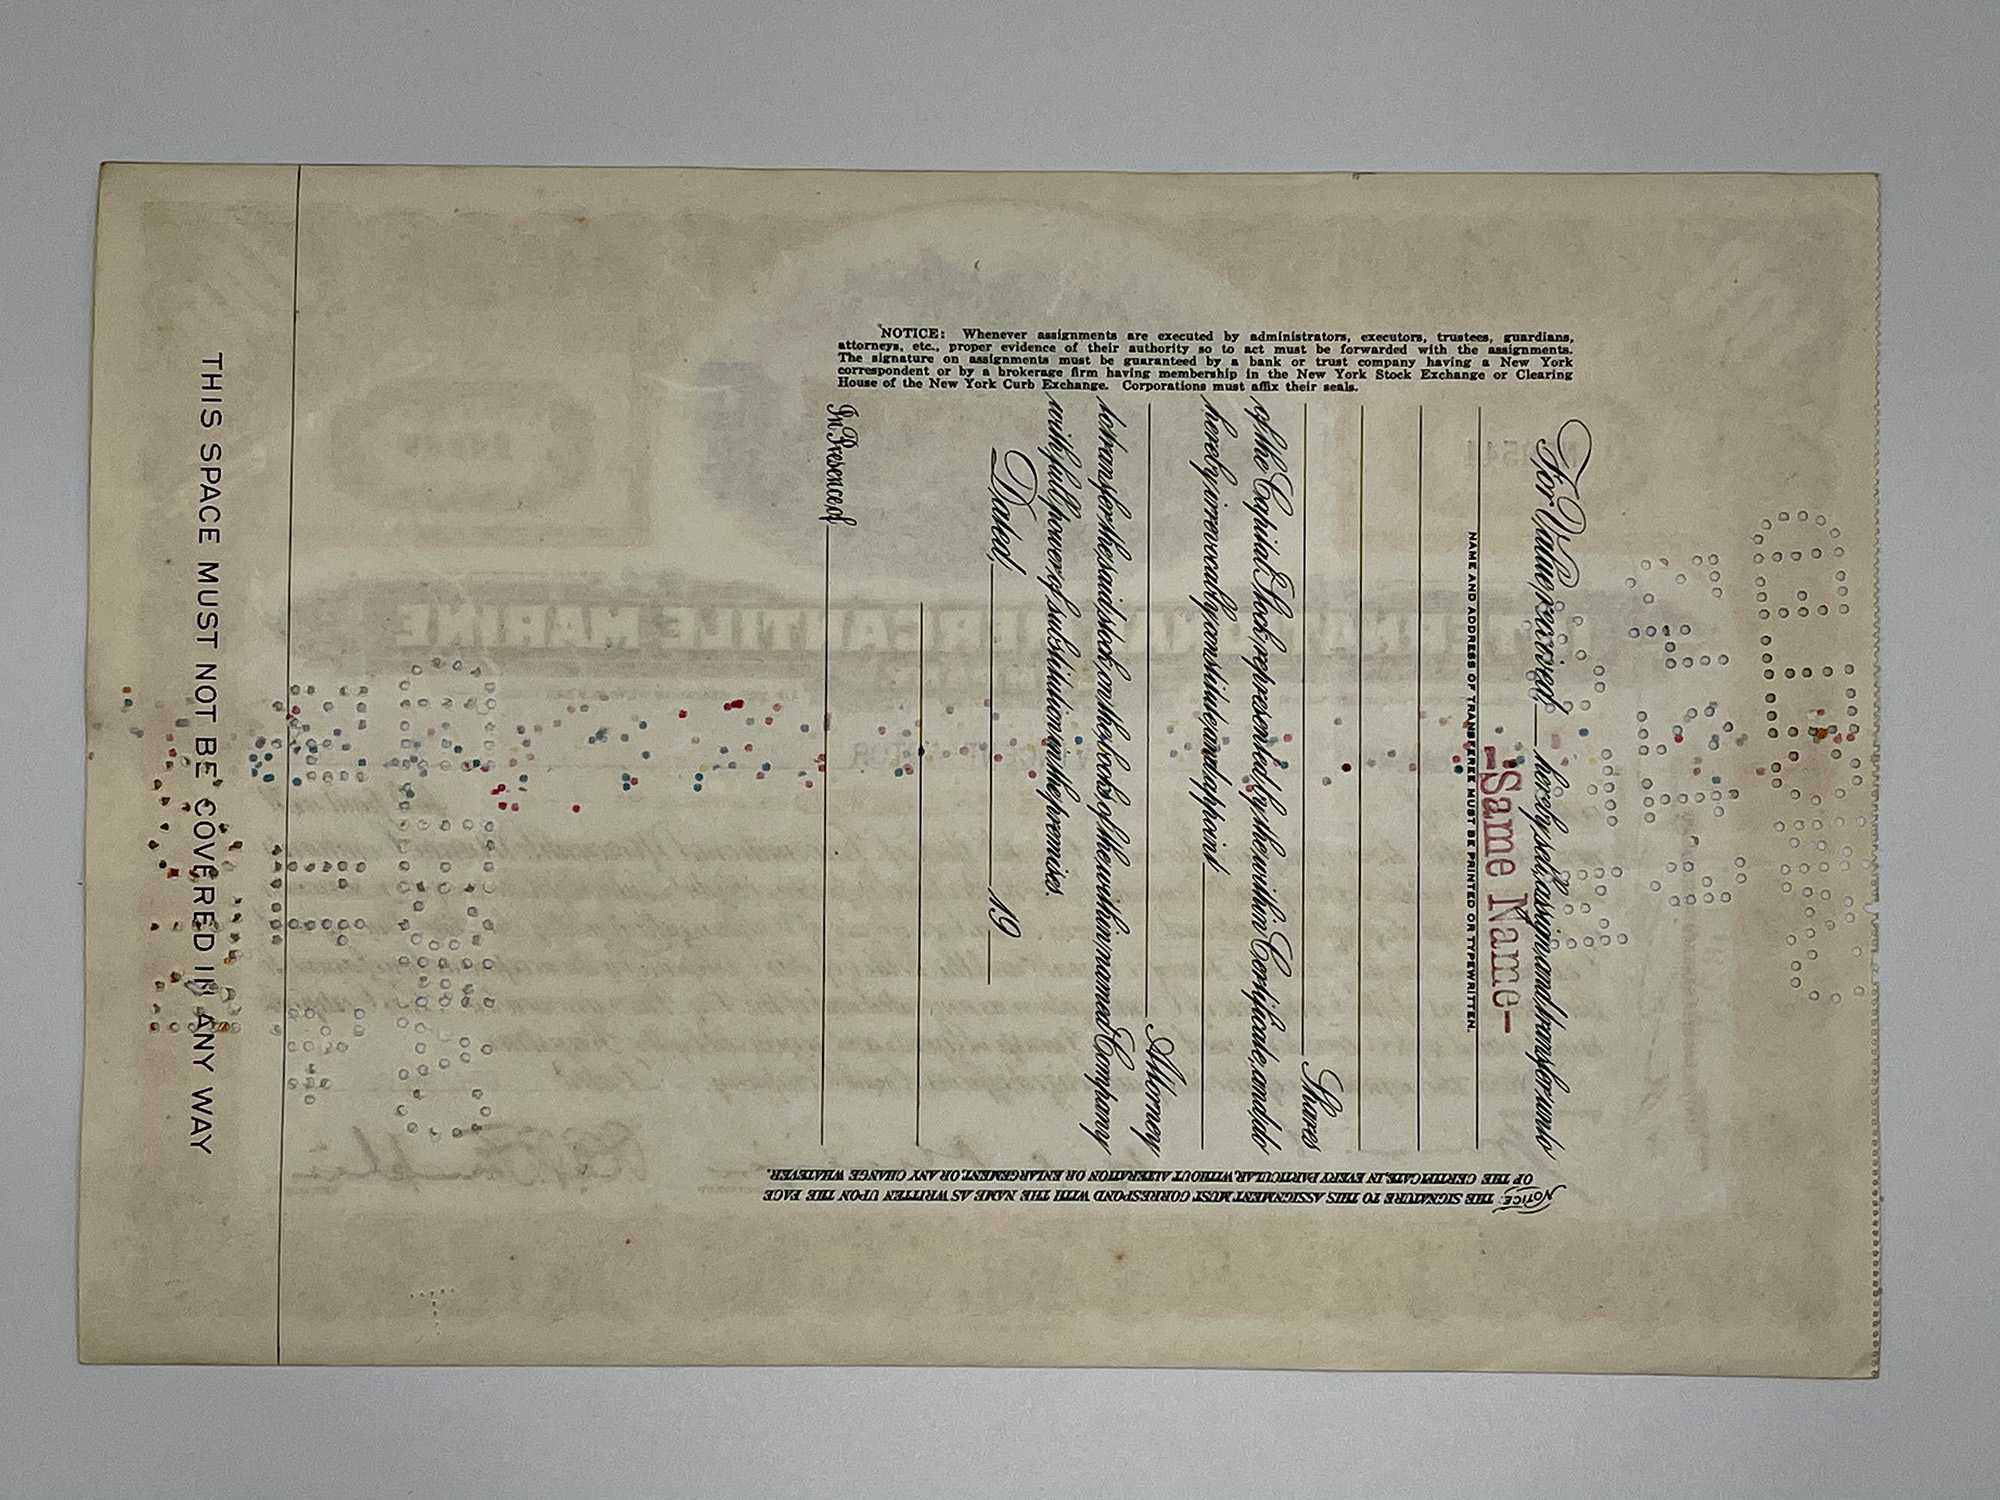 NOTICE: Whenever assignments are executed by administrators, executors, trustees, guardians,
attorneys, etc., proper evidence of their authority so to act must be forwarded with the assignments.
The signature on assignments must be guaranteed by a bank or trust company having a New York
correspondent or by a brokerage firm having membership in the New York Stock Exchange or Clearing
House of the New York Curb Exchange. Corporations must affix their seals.
For Value received, hereby sell, assign and transfer unto
-Same Name-
NAME AND ADDRESS OF TRANSFEREE MUST BE PRINTED OR TYPEWRITTEN.
Shares
of the Capital Stock represented by the within Certificate, and do
hereby irrevocably constitute and appoint
Attorney
to transfer the said stock on the books of the within named Company
with full power of substitution in the premises.
Dated, 19
In Presence of
NOTICE: THE SIGNATURE TO THIS ASSIGNMENT MUST CORRESPOND WITH THE NAME AS WRITTEN UPON THE FACE
OF THE CERTIFICATE, IN EVERY PARTICULAR, WITHOUT ALTERATION OR ENLARGEMENT, OR ANY CHANGE WHATEVER.
THIS SPACE MUST NOT BE COVERED IN ANY WAY